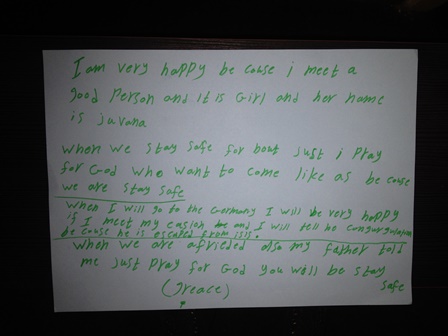 I am very happy be couse i meet a
good Person and it is Girl and her name
is Juvana
when we stay safe for bout Just i Pray
for God who want to come like as be couse
we are stay safe
when I will go to the Germany I will be very happy
if I meet my casion and I will tell he
be couse he is escaped from isis.
when we are afrieded also my father told
me Just pray for God you will be stay
safe
(Greace)